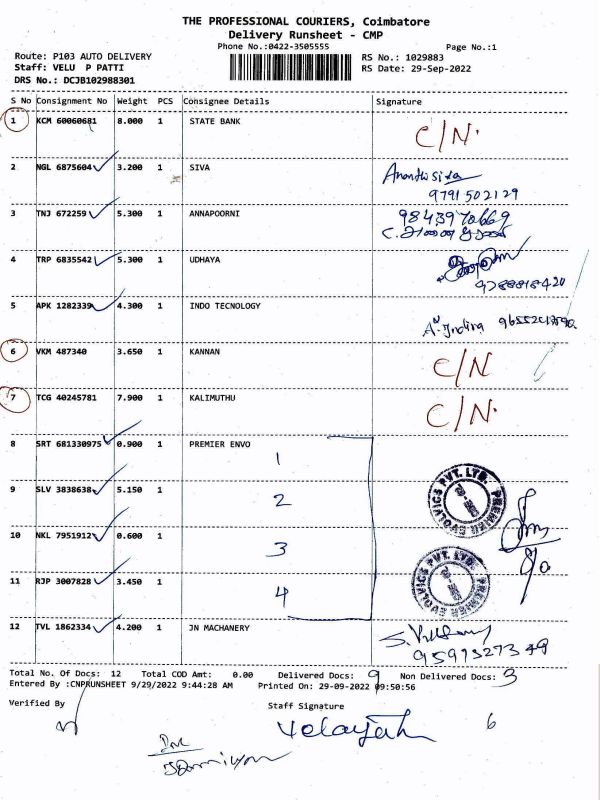 THE PROFESSIONAL COURIERS, Coimbatore
Delivery Runsheet - CMP
Phone No.:0422-3505555
Page No.:1
Route: P103 AUTO DELIVERY
Staff: VELU P PATTI
DRS No.: DCJB102988301
RS No.: 1029883
RS Date: 29-Sep-2022
S No Consignment No Weight PCS Consignee Details Signature
1 KCM 60060681 8.000 1 STATE BANK C/N.
2 NGL 6875604 3.200 1 SIVA
9791502129
3 TNJ 672259 5.300 1 ANNAPOORNI
9843970669
4 TRP 6835542 5.300 1 UDHAYA
9788818420
5 APK 1282339 4.300 1 INDO TECNOLOGY
A. Indira
6 VKM 487340 3.650 1 KANNAN C/N
7 TCG 40245781 7.900 1 KALIMUTHU C/N.
8 SRT 681330975 0.900 1 PREMIER ENVO
1
9 SLV 3838638 5.150 1
2
PREMIER EVOLVICS PVT. LTD.
10 NKL 7951912 0.600 1
3
11 RJP 3007828 3.450 1
4
PREMIER EVOLVICS PVT. LTD.
12 TVL 1862334 4.200 1 JN MACHANERY
9591327349
Total No. Of Docs: 12 Total COD Amt: 0.00 Delivered Docs: 9 Non Delivered Docs: 3
Entered By :CNPRUNSHEET 9/29/2022 9:44:28 AM Printed On: 29-09-2022 09:50:56
Verified By Staff Signature
6